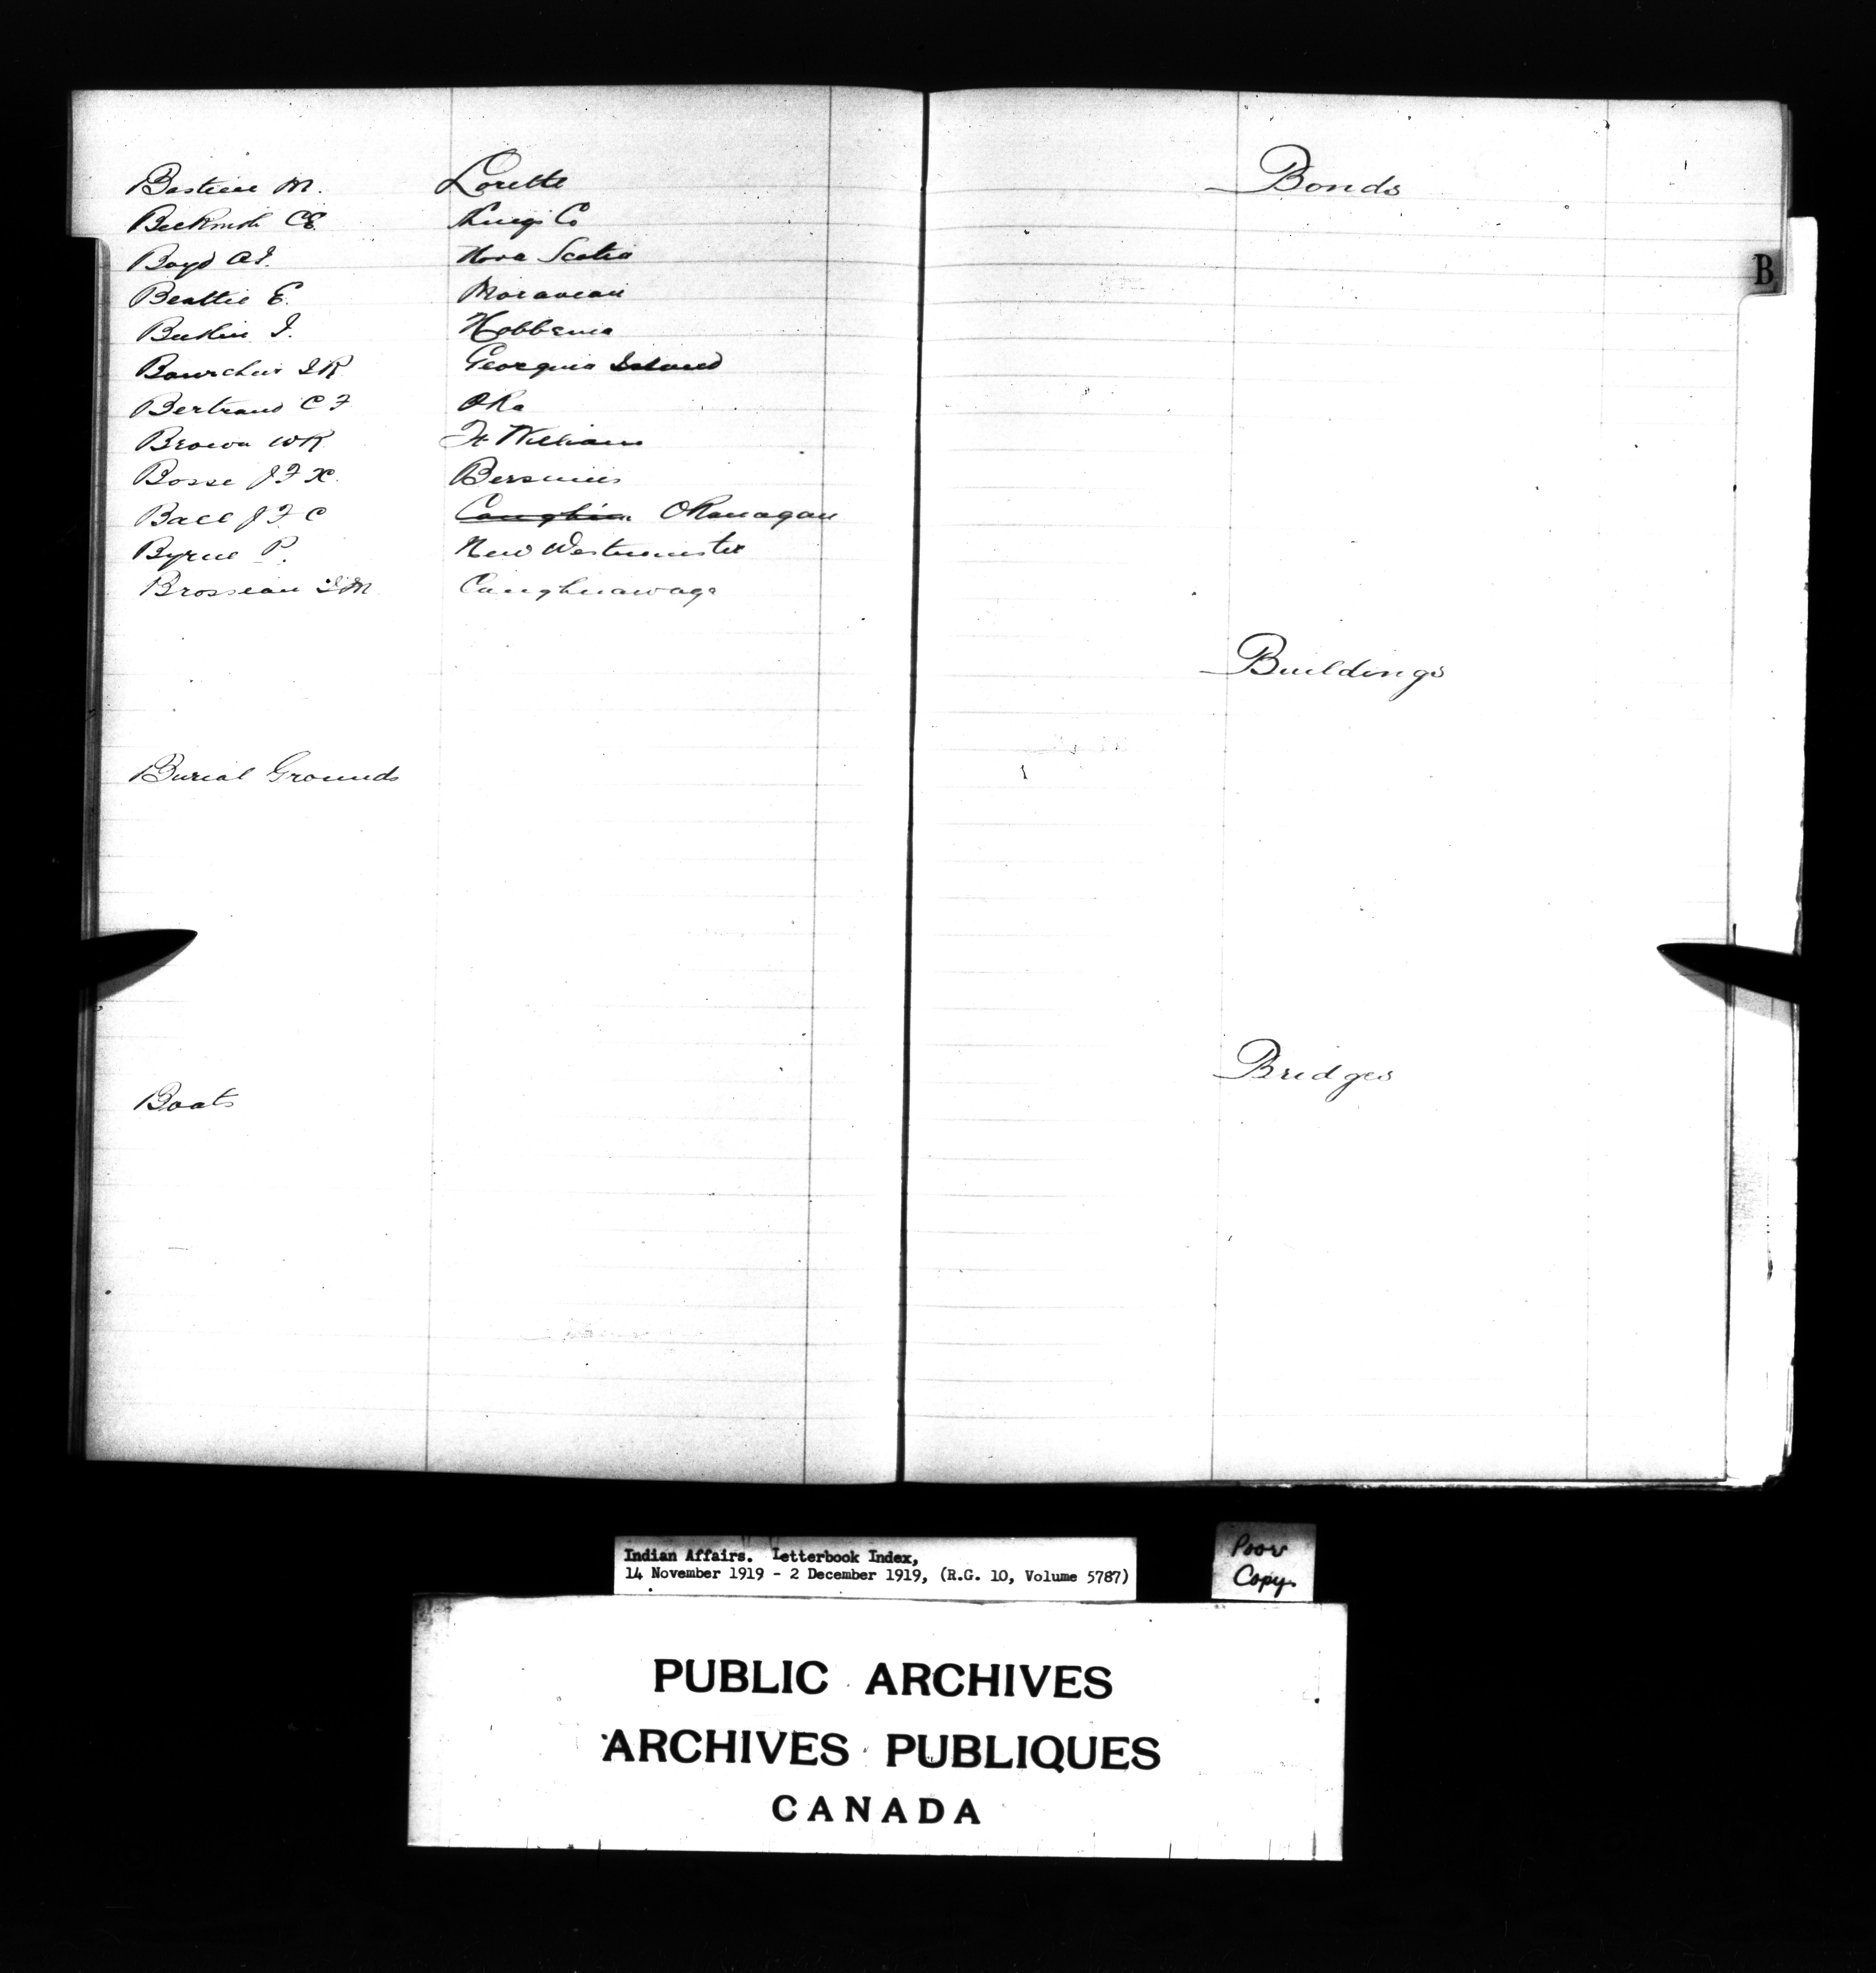 Bastien M. Lorette
Beckwith CE Kings Co
Boyd A.J. Nova Scotia
Beattie E. Moravian
Butlin J. Hobbema
Bourchier J R Georgina Island
Bertrand C F Oka
Brown W R Ft William
Bosse J F X. Bersimis
Ball J F C Okanagan
Byrne P. New Westminster
Brosseau J M Caughnawaga
Burial Grounds
Boats
Bonds
B
Buildings
Bridges
Indian Affairs. Letterbook Index,
14 November 1919 - 2 December 1919, (R.G. 10, Volume 5787)
Poor
Copy.
PUBLIC ARCHIVES
ARCHIVES PUBLIQUES
CANADA